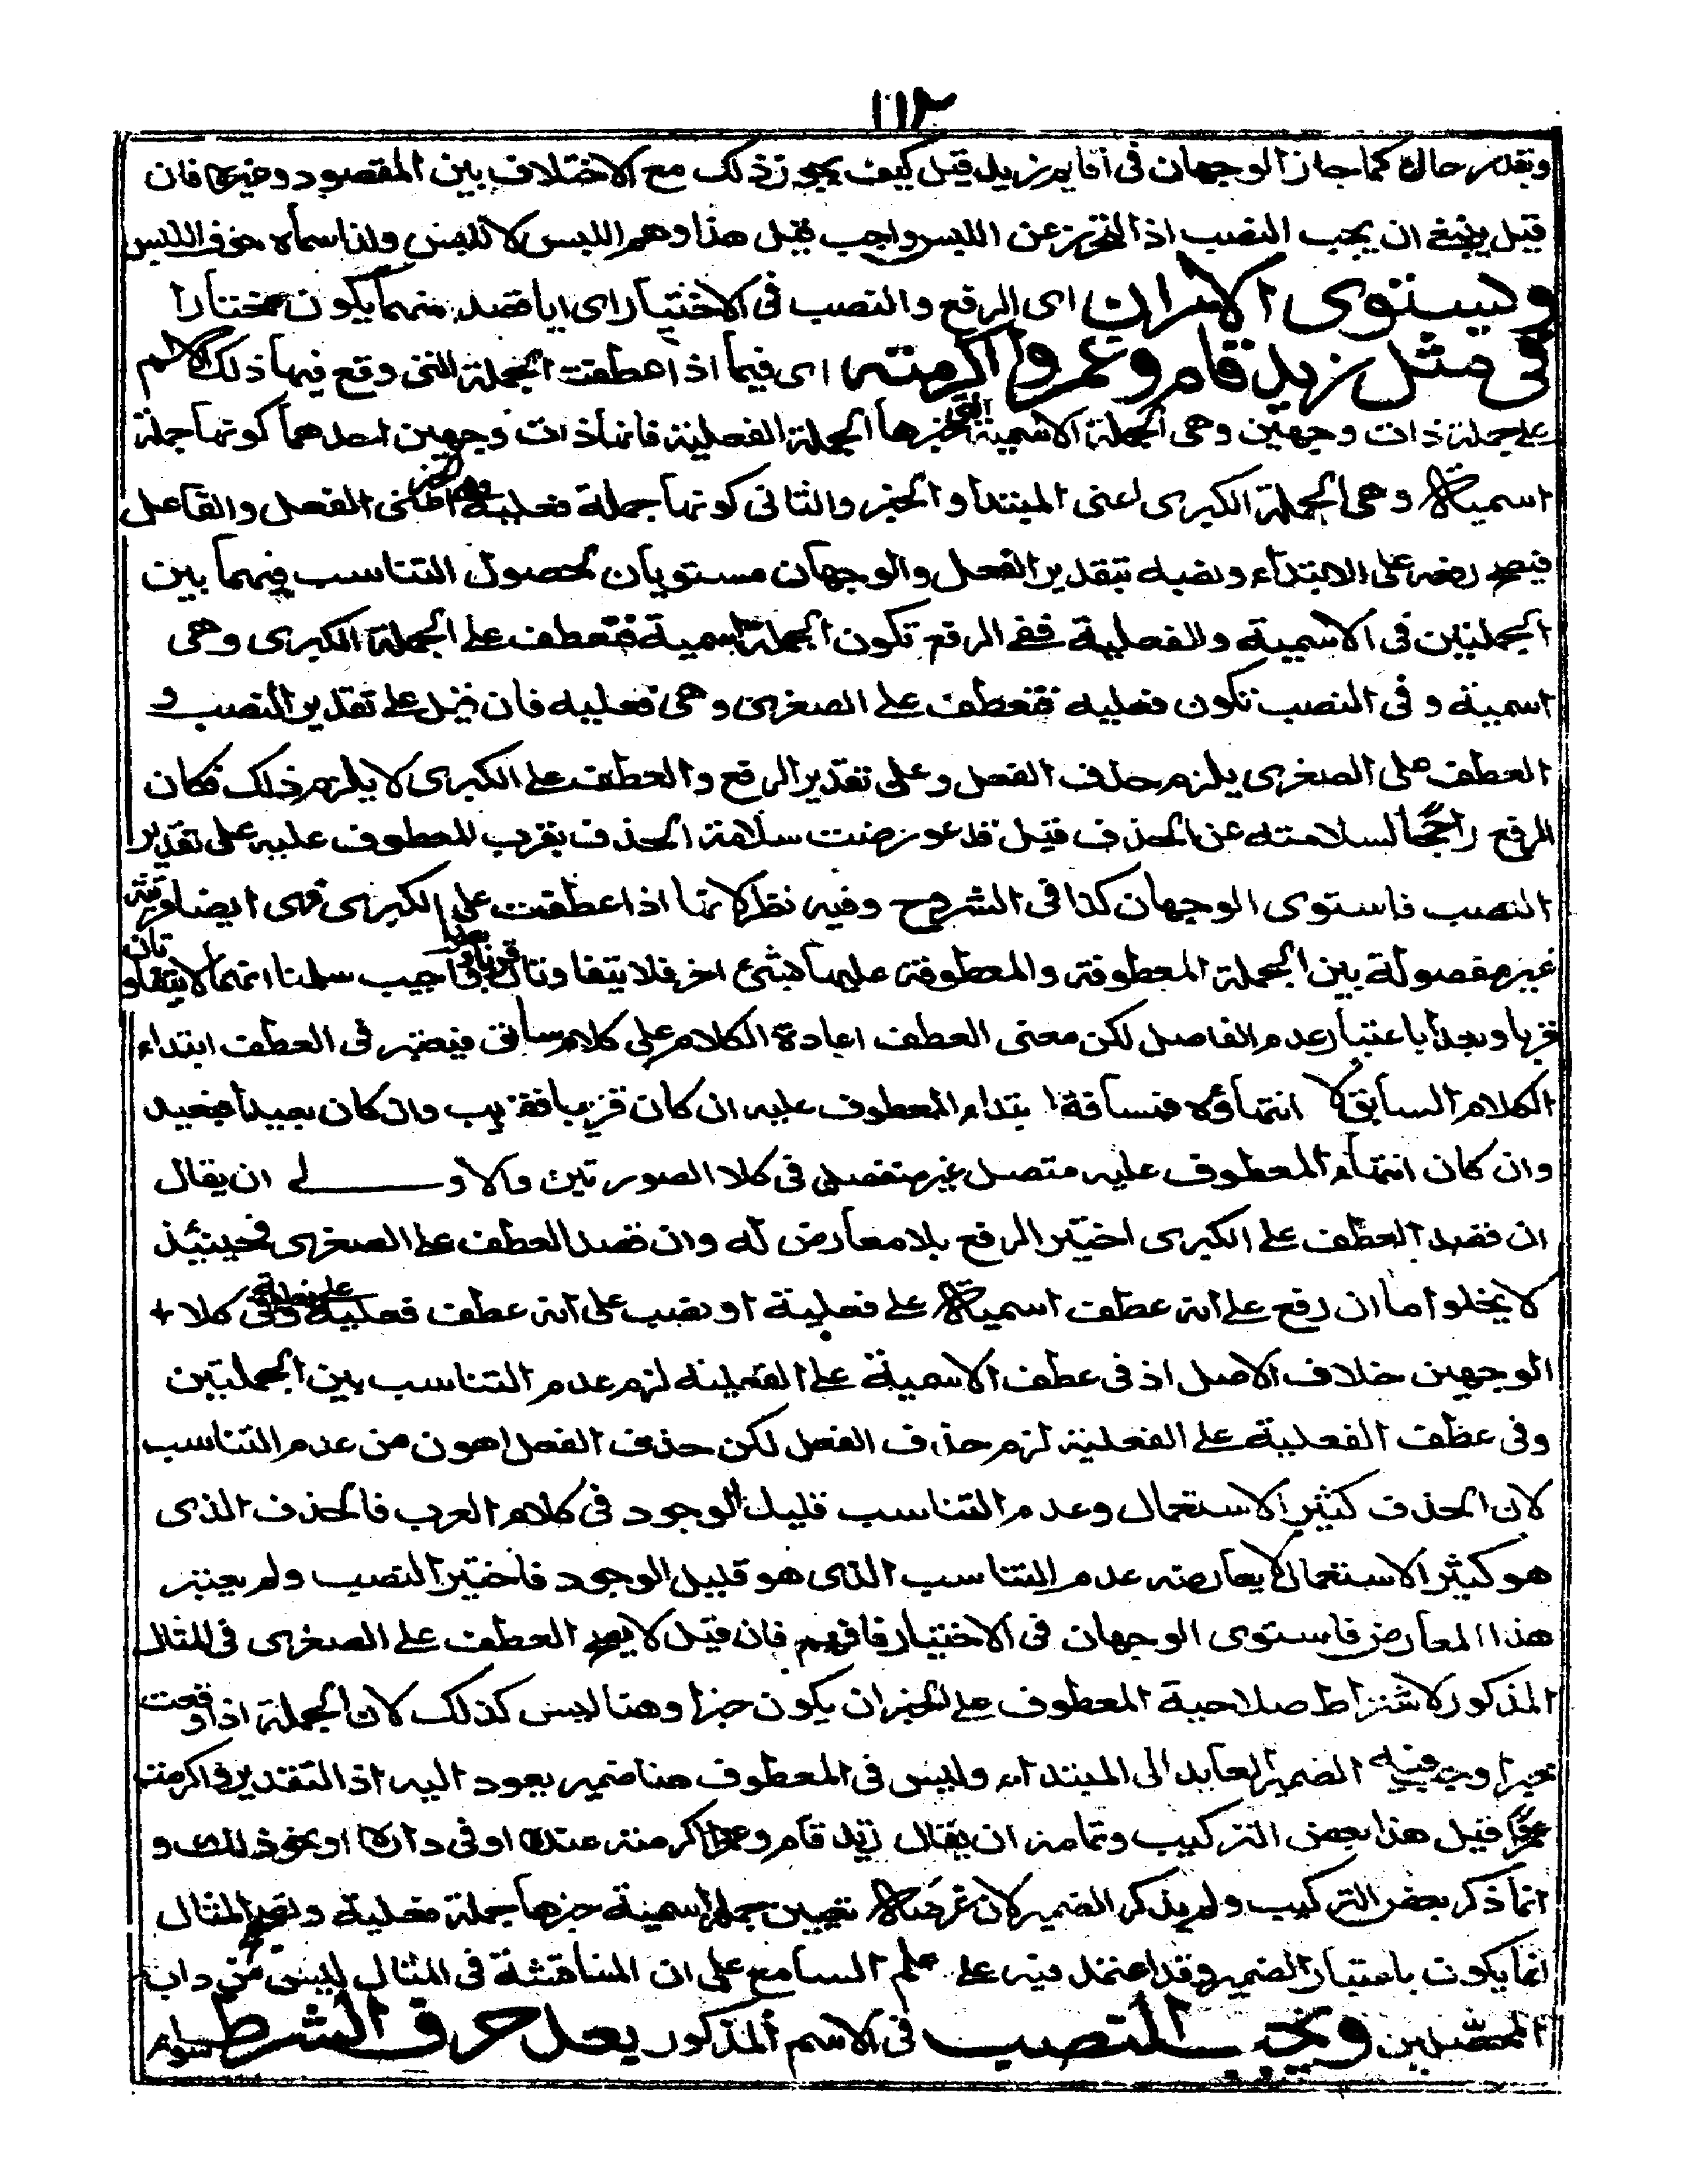 ١١٢
وتقدير حال كما جاز الوجهان فى أقايم زيد قيل كيف يجوز ذلك مع الاختلاف بين المقصود وغيره فان
قيل ينبغى ان يجب النصب اذ التحرز عن اللبس واجب قيل هذا وهم اللبس لا اللبس ولذا سماه خوف اللبس
ويستوى الامران اى الرفع والنصب فى الاختيار اى ايا قصد منهما يكون مختارا
فى مثل زيد قام وعمرو اكرمته اى فيما اذا عطفت الجملة التى وقع فيها ذلك الاسم
على جملة ذات وجهين وهى الجملة الاسمية التى خبرها الجملة الفعلية فانها ذات وجهين احدهما كونها جملة
اسمية وهى الجملة الكبرى اعنى المبتدأ والخبر والثانى كونها جملة فعلية وهى الخبر اعنى الفعل والفاعل
فيصح رفعه على الابتداء ونصبه بتقدير الفعل والوجهان مستويان لحصول التناسب فيهما بين
الجملتين فى الاسمية والفعلية ففى الرفع تكون الجملة اسمية فتعطف على الجملة الكبرى وهى
اسمية وفى النصب تكون فعلية فتعطف على الصغرى وهى فعلية فان قيل على تقدير النصب و
العطف على الصغرى يلزم حذف الفعل وعلى تقدير الرفع والعطف على الكبرى لا يلزم ذلك فكان
الرفع راجحا لسلامته عن الحذف قيل قد عورضت سلامة الحذف بقرب المعطوف عليه على تقدير
النصب فاستوى الوجهان كذا فى الشروح وفيه نظر لانها اذا عطفت على الكبرى فهى ايضا قريبة
غير مفصولة بين الجملة المعطوفة والمعطوفة عليها بشئ اخر فلا يتفاوتان قربا وبعدا اجيب سلمنا انهما لا يتفاوتان
قربا وبعدا باعتبار عدم الفاصل لكن معنى العطف اعادة الكلام على كلام سابق فيعتبر فى العطف ابتداء
الكلام السابق لا انتهاؤه فمسافة ابتداء المعطوف عليه ان كان قريبا فقريب وان كان بعيدا فبعيد
وان كان انتهاء المعطوف عليه متصل غير منفصل فى كلا الصورتين والاولى ان يقال
ان قصد العطف على الكبرى اختير الرفع بلا معارض له وان قصد العطف على الصغرى فحينئذ
لا يخلو اما ان رفع على انه عطف اسمية على فعلية او نصب على انه عطف فعلية على فعلية وفى كلا
الوجهين خلاف الاصل اذ فى عطف الاسمية على الفعلية لزم عدم التناسب بين الجملتين
وفى عطف الفعلية على الفعلية لزم حذف الفعل لكن حذف الفعل اهون من عدم التناسب
لان الحذف كثير الاستعمال وعدم التناسب قليل الوجود فى كلام العرب فالحذف الذى
هو كثير الاستعمال لا يعارضه عدم التناسب الذى هو قليل الوجود فاختير النصب ولم يعتبر
هذا المعارض فاستوى الوجهان فى الاختيار فافهم فان قيل لا يصح العطف على الصغرى فى المثال
المذكور لاشتراط صلاحية المعطوف على الخبر ان يكون خبرا وهنا ليس كذلك لان الجملة اذا وقعت
خبرا وجب فيه الضمير العايد الى المبتداء وليس فى المعطوف هنا ضمير يعود اليه اذ التقدير واكرمت
عمرا قيل هذا بعض التركيب وتمامه ان يقال زيد قام وعمرا اكرمته عنده او فى داره او نحو ذلك و
انما ذكر بعض التركيب ولم يذكر الضمير لان غرضه تعيين جملة اسمية خبرها جملة فعلية وتصحيح المثال
انما يكون باعتبار الضمير وقد اعتمد فيه على علم السامع على ان المناقشة فى المثال ليس من داب
المحصلين ويجب النصب فى الاسم المذكور بعد حرف الشرط سواء